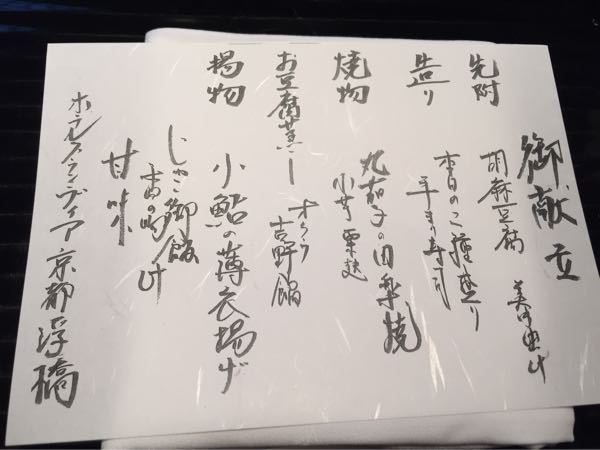 御献立
先附
胡麻豆腐
美味出汁
造り
本日の二種盛り
手まり寿司
焼物
丸茄子の田楽焼
小芋 粟麩
お豆腐蒸し
オクラ
吉野餡
揚物
小鮎の薄衣揚げ
じゃこ御飯
香の物
汁
甘味
ホテルスランディア京都浮橋